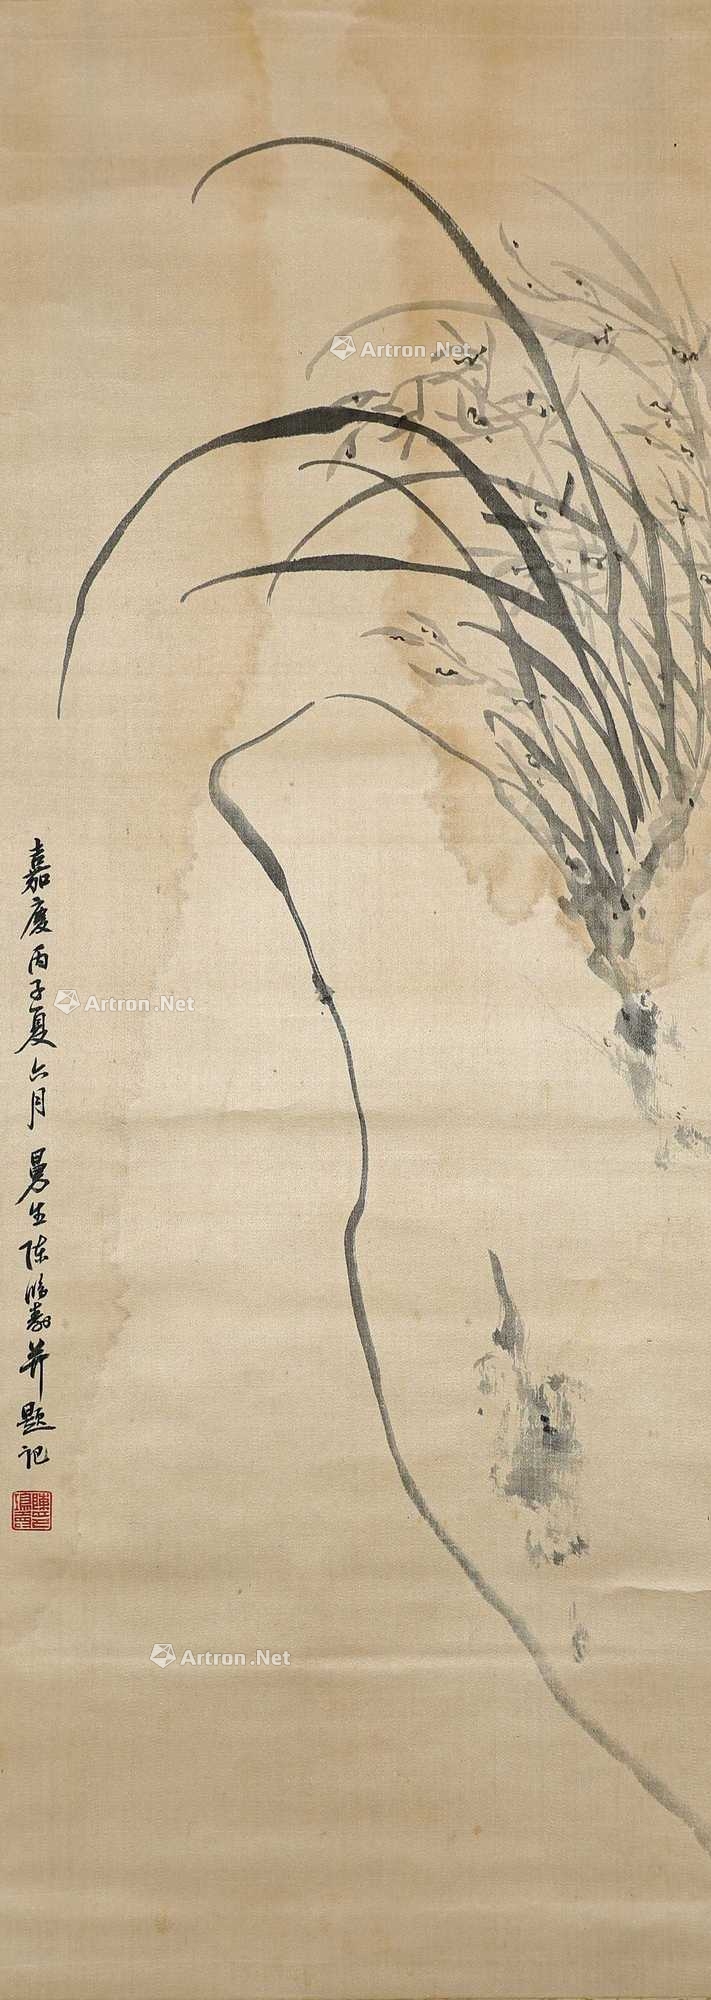 Artron.Net
嘉慶丙子夏六月曼生陈鴻壽并題记
Artron.Net
陳鴻壽印
Artron.Net